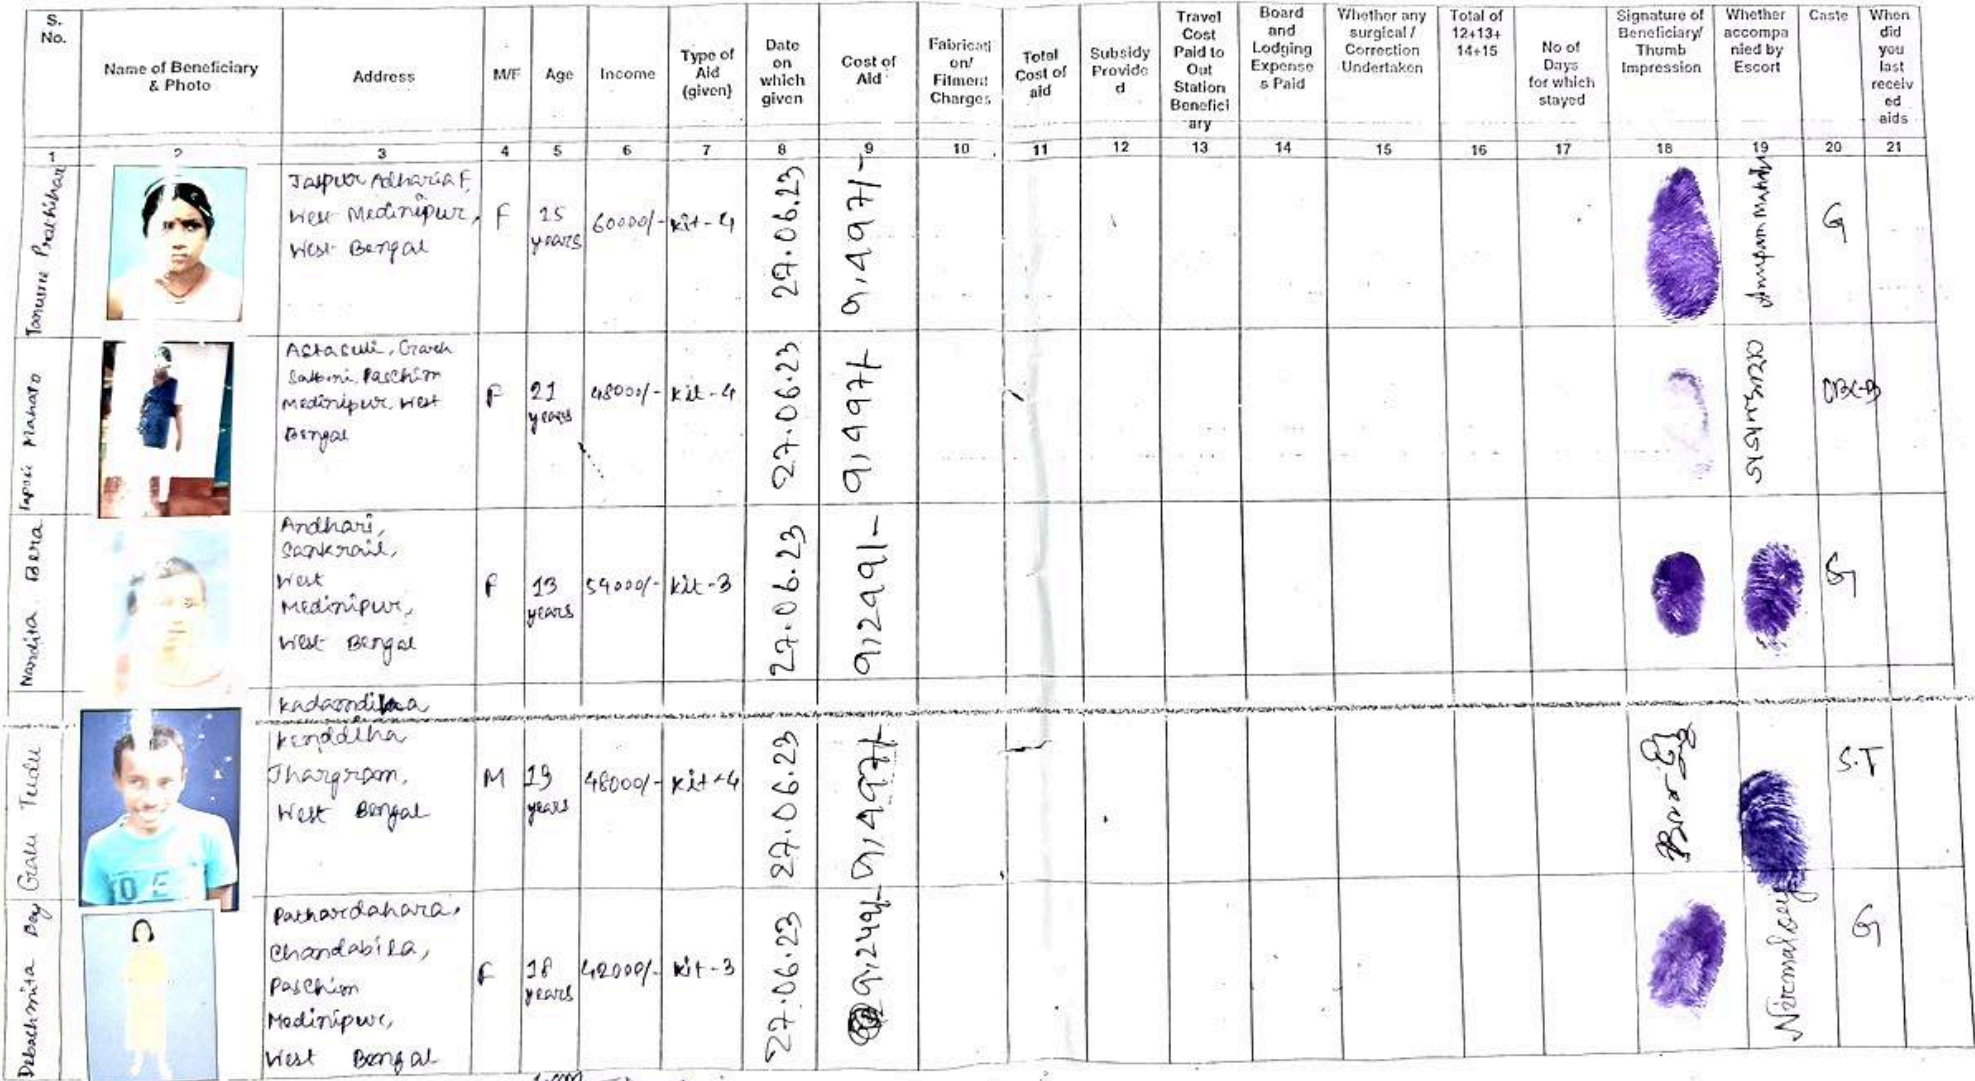 S. No.
Name of Beneficiary & Photo
Address
M/F
Age
Income
Type of Aid (given)
Date on which given
Cost of Aid
Fabricati on/ Fitment Charges
Total Cost of aid
Subsidy Provide d
Travel Cost Paid to Out Station Benefici ary
Board and Lodging Expense s Paid
Whether any surgical / Correction Undertaken
Total of 12+13+ 14+15
No of Days for which stayed
Signature of Beneficiary/ Thumb Impression
Whether accompa nied by Escort
Caste
When did you last receiv ed aids
1 2 3 4 5 6 7 8 9 10 11 12 13 14 15 16 17 18 19 20 21
Jaspur Adharia F,
West Medinipur,
West Bengal
F
15 years
60000/-
kit-4
27.06.23
9,497/-
G
Tapasi Mahato
Paschim
Medinipur, West
Bengal
F
21 years
48000/-
kit-4
27.06.23
9,497/-
OBC-B
Nandita Bera
Andhari,
Sankrail,
West
Medinipur,
West Bengal
F
13 years
54000/-
kit-3
27.06.23
9,249/-
G
Tudu
Jhargram,
West Bengal
M
19 years
48000/-
kit-4
27.06.23
9,497/-
S.T
Pathardahara,
Chandabila,
Paschim
Medinipur,
West Bengal
F
18 years
42000/-
kit-3
27.06.23
9,249/-
G